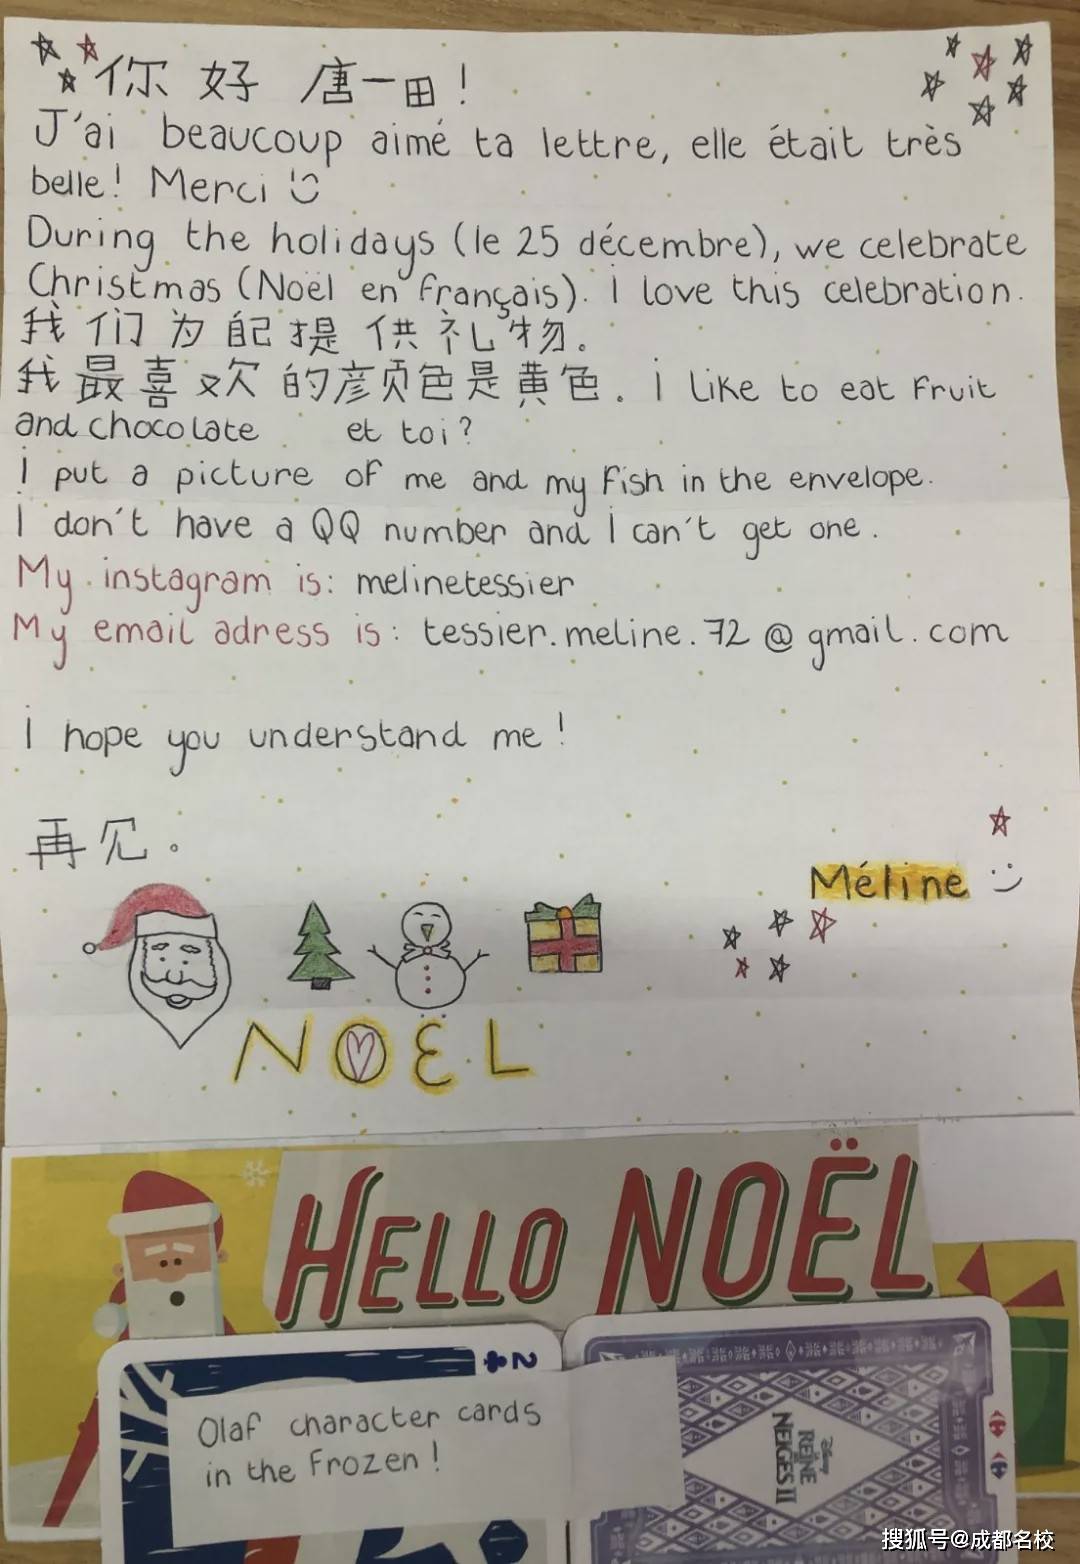 你好 唐一田!
J'ai beaucoup aimé ta lettre, elle était très
belle! Merci
During the holidays (le 25 décembre), we celebrate
Christmas (Noël en français). I love this celebration.
我们为自己提供礼物。
我最喜欢的颜色是黄色. I like to eat fruit
and chocolate et toi?
I put a picture of me and my fish in the envelope.
I don't have a QQ number and I can't get one.
My instagram is: melinetessier
My email adress is: tessier.meline.72@gmail.com
I hope you understand me!
再见。
Méline
NOËL
HELLO NOËL
2
Olaf character cards
in the Frozen!
Disney
LA REINE
DES
NEIGES II
搜狐号@成都名校